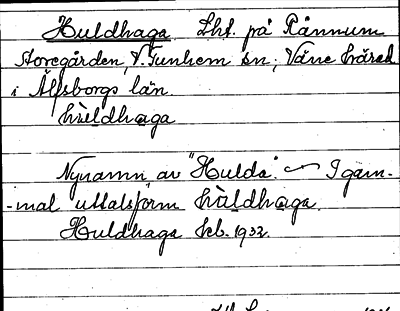 Huldhaga Lhf. på Rånnum
Storegården, V. Tunhem sn; Väne härad
i Älfsborgs län.
hùldhaga
Nynamn av "Hulda". I gam-
-mal uttalsform hùldhaga.
Huldhaga Jeb. 1932.